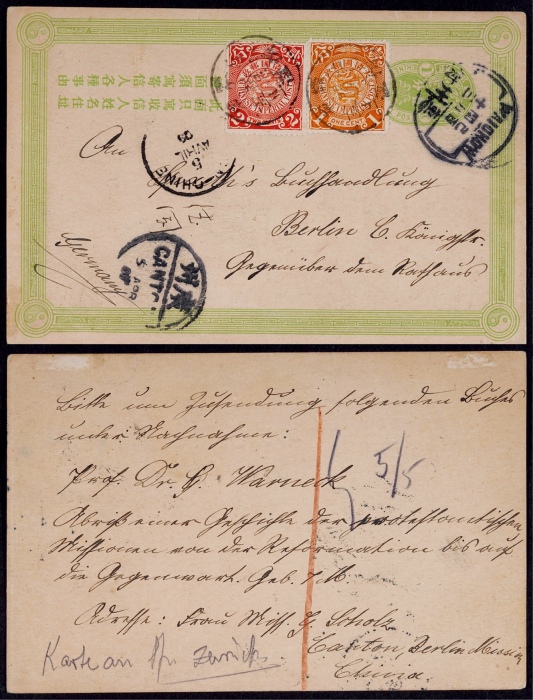 CHINESE IMPERIAL POST
2 TWO CENTS 2
1 ONE CENT 1
CHINE
5
AVRIL
An
Buchhandlung
Berlin C. Königstr.
Gegenüber dem Rathaus
Germany
州廣
CANTO
5 APR
Bitte um Zusendung folgenden Buches
unter Nachnahme:
Prof. Dr. G. Warneck
5/5
Abriß einer Geschichte der protestantischen
Missionen von der Reformation bis auf
die Gegenwart. Geb. 7 M
Adresse: Frau Miss. G. Scholz
Canton, Berlin Mission
China.
Karte an zurück.